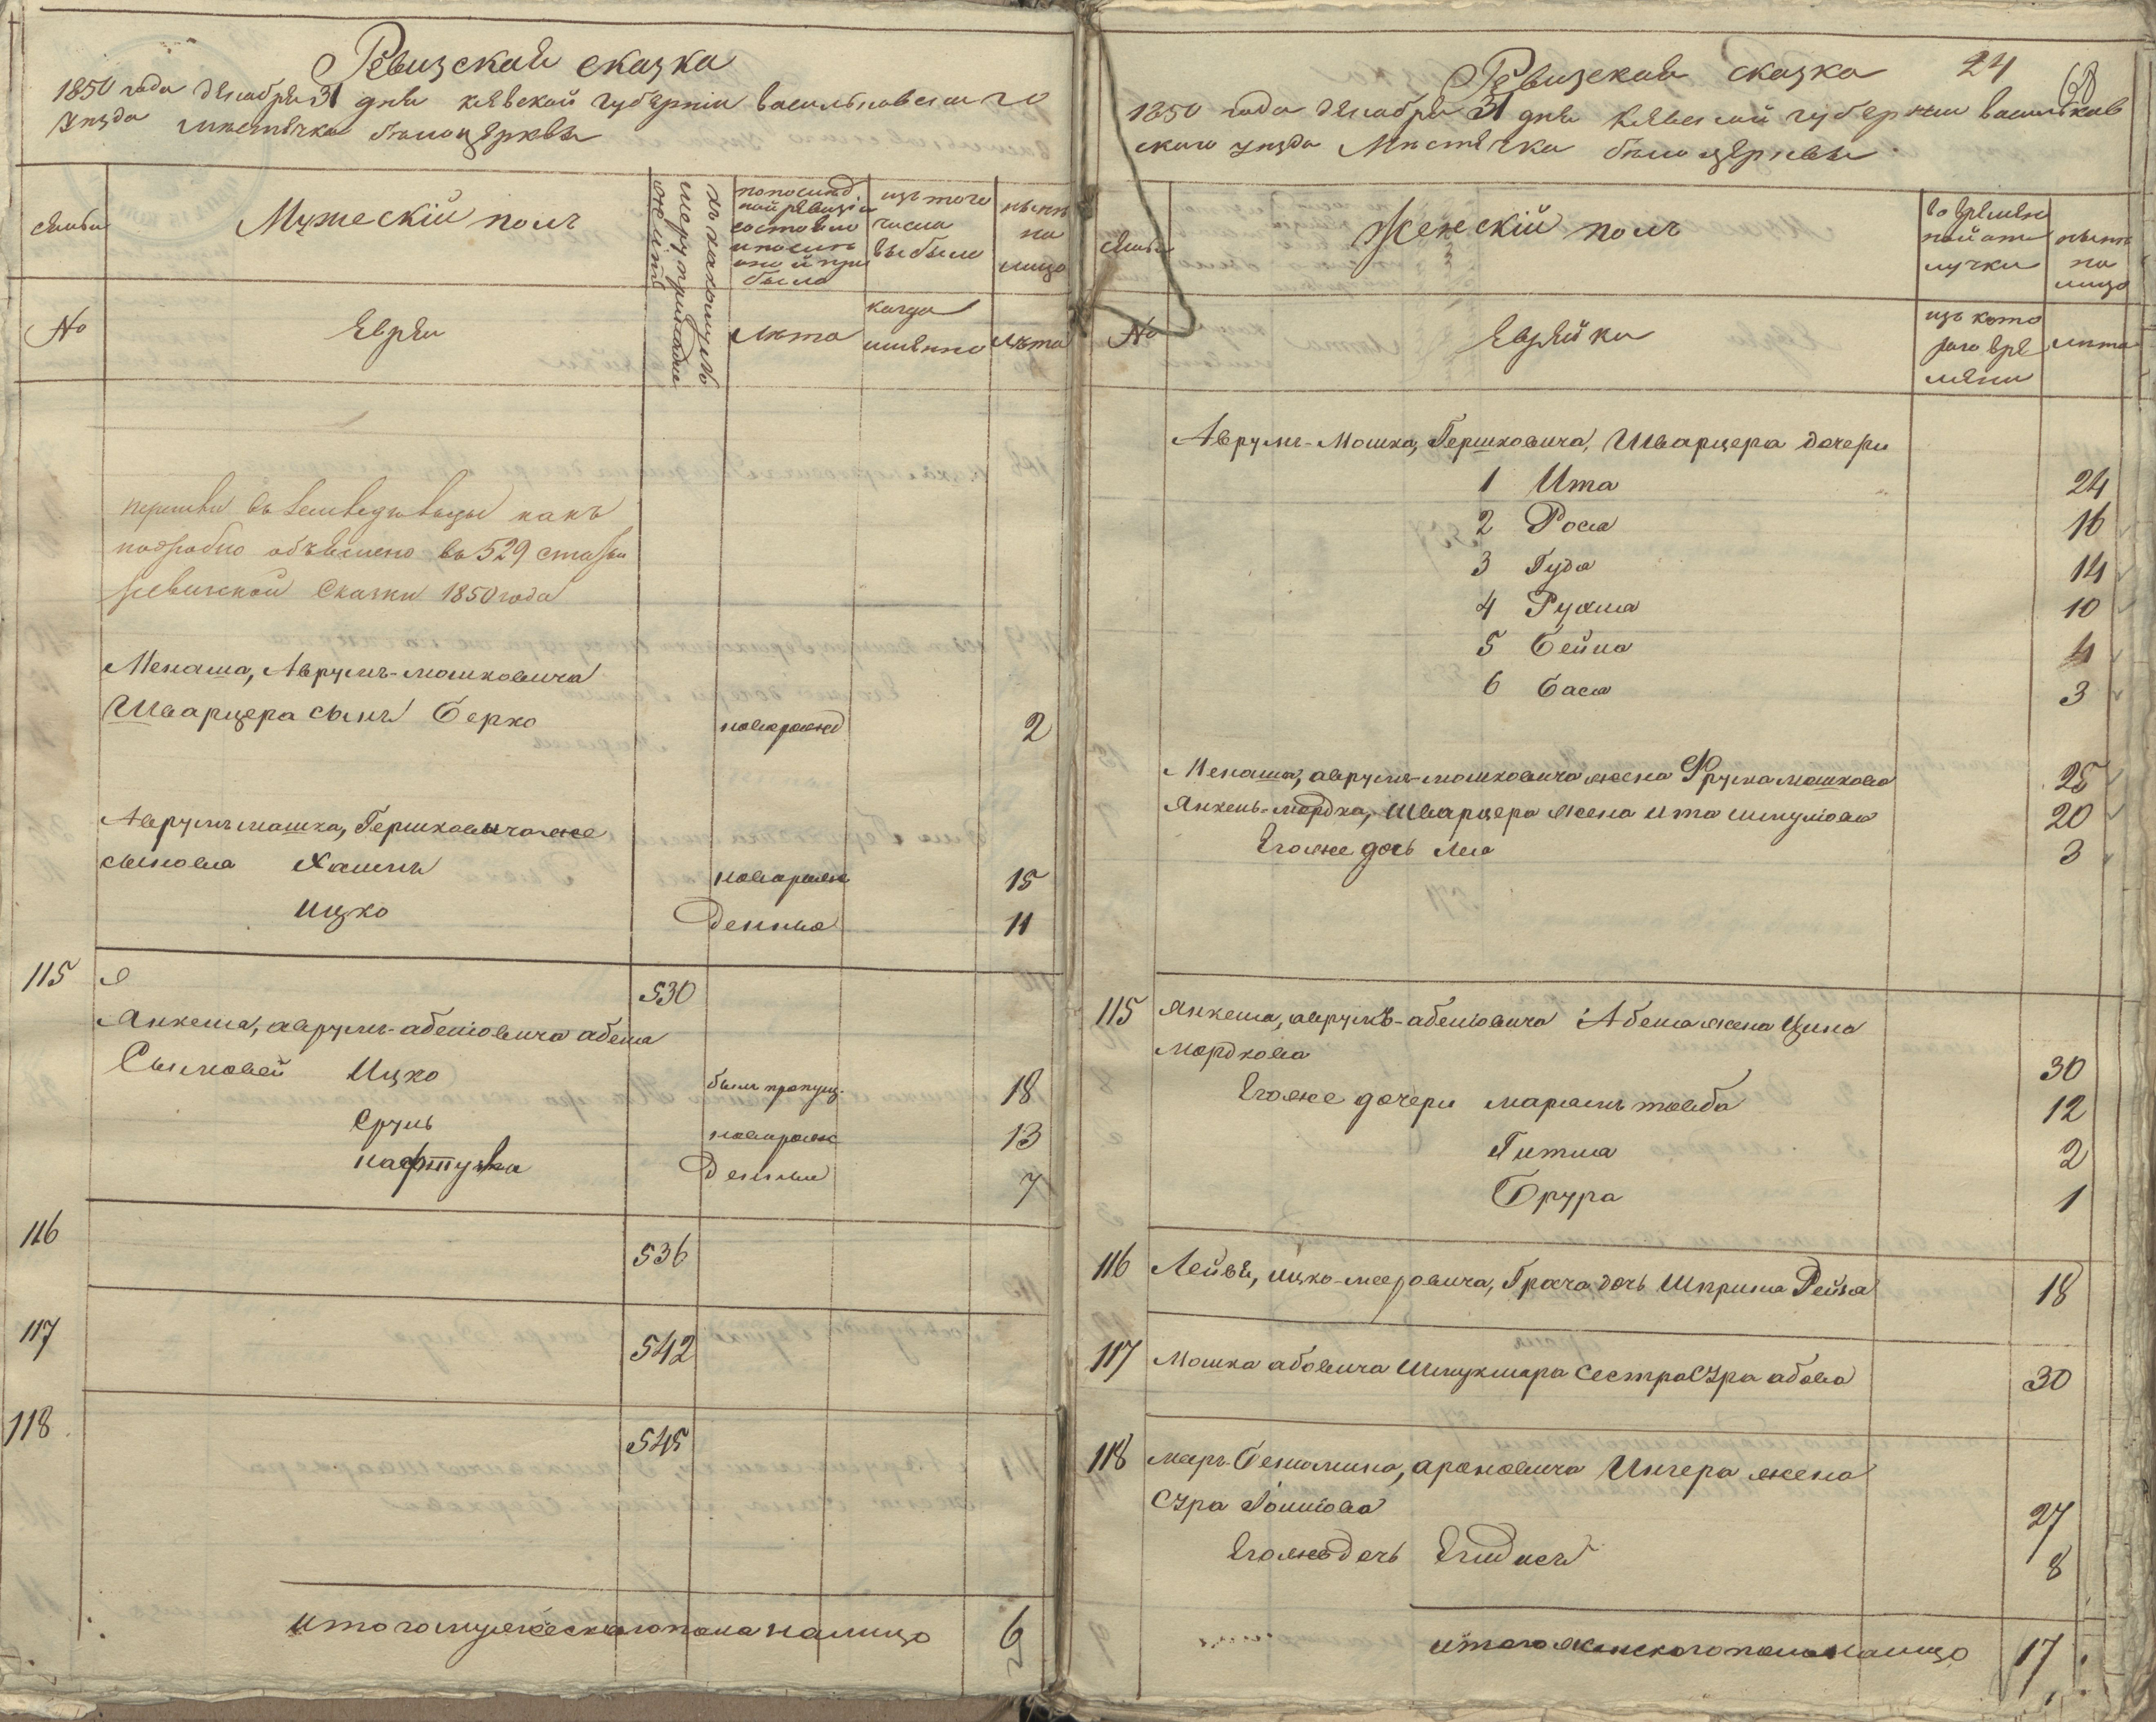 Ревизская сказка
1850 года декабря 31 дня киевской губернии васильковского
уезда местечка белоцеркви
семьи
Мужескій полъ
къ какому именно
по последней ревизіи состояло и после оной прибыло
изъ того числа выбыло
ныне на лицо
№
Евреи
Лета
когда именно
Лета
перешли въ какъ
подробно объяснено въ 529 статьи
ревизской Сказки 1850 года
Менаша, Аврумъ-Мошковича
Шварцера сынъ Берко новорожд 2
Аврумъ мошка, Гершковича же
сыновья Хаимъ новорож 15
Ицко денные 11
115 530
Янкеля, аврумъ-абелiовича абеля
Сыновей Ицко былъ пропущ. 18
Сруль новорож 13
нафтула денные 7
116 536
117 542
118 545
итого мужескаго пола на лицо 6
Ревизская сказка 24
68
1850 года декабря 31 дня киевской губернии васильков
ского уезда Местечка белоцеркви
семьи
Женскій полъ
во временной отлучки
ныне на лицо
№
Еврейки
изъ которого времени
лета
Аврумъ-Мошка, Гершковича, Шварцера дочери
1 Ита 24
2 Рося 16
3 Гуда 14
4 Рухля 10
5 Бейла 4
6 Бася 3
Менаша, аврумъ-мошковича жена Фрума мошкова 25
Янкель-мордка, Шварцера жена ита шмулiова 20
Егоже дочь Лея 3
115 Янкеля, аврумъ-абелiовича Абеля жена Ципа
мордкова 30
Егоже дочери марьямъ тойба 12
Гитля 2
Брура 1
116 Лейви, ицко-мееровича, Грача дочь Шприна Рейзя 18
117 Мошка абовича Шмуклера сестра Сура абова 30
118 мееръ-Бениамина, ароновича Ингера жена
Сура 27
Егоже дочь 8
итого женскаго пола налицо 17